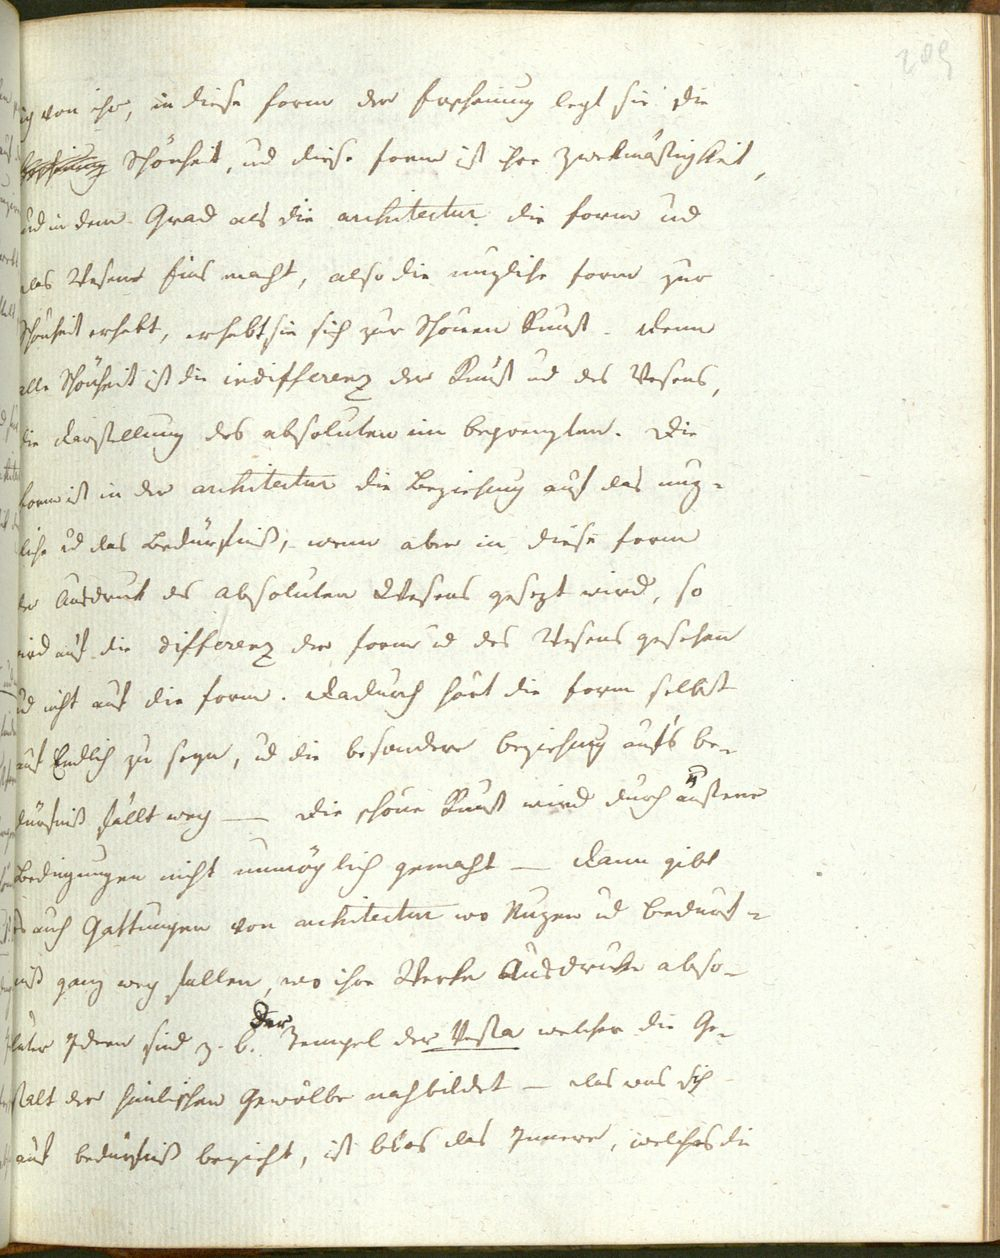 289
ig von ihr, in diese form der Erscheinung legt sie die
Erscheinung Schönheit, ud diese form ist ihre Zwekmäsigkeit,
ud in dem Grad als die architectur die form ud
das Wesen Eins macht, also die nuzliche form zur
Schönheit erhebt, erhebt sie sich zur Schönen Kunst. Denn
alle Schönheit ist die indifferenz der Kunst ud des Wesens,
die Darstellung des absoluten im begrenzten. Die
Form ist in der architectur die Beziehung auf das nuz-
liche ud das Bedürfniß, wenn aber in diese form
der Ausdruk des absoluten Wesens gesezt wird, so
wird auf die differenz der form ud des Wesens gesehen
ud nicht auf die form. Dadurch hört die form selbst
auf Endlich zu seyn, ud die besondere beziehung aufs be-
dürfniß fällt weg — Die schöne Kunst wird durch äußere
Bedingungen nicht unmöglich gemacht — Dann gibt
es auch Gattungen von architectur wo Nuzen ud bedürf-
niß ganz weg fallen, wo ihre Werke Ausdrücke abso-
luter Ideen sind z. b. Der Tempel der Vesta welcher die Ge-
stalt der himlischen Gewölbe nachbildet — das was sich
auf bedürfniß bezieht, ist blos das Innere, welches die